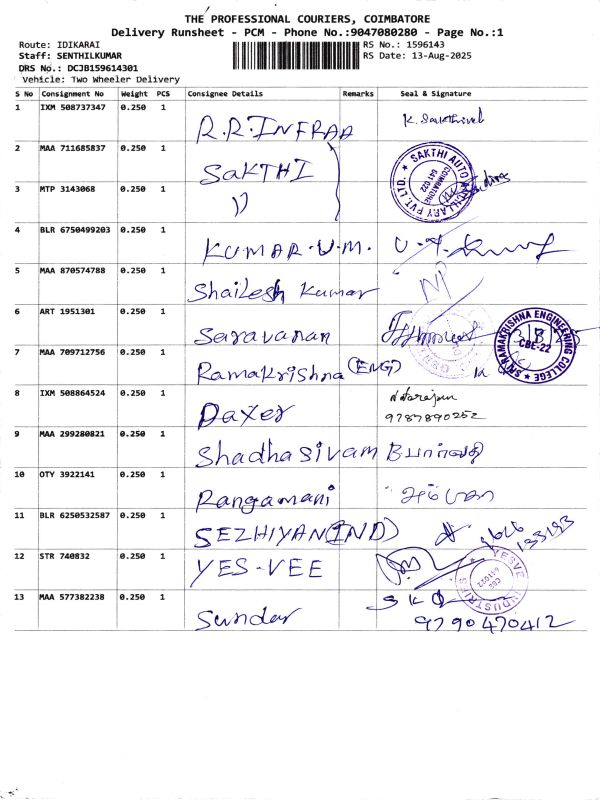 THE PROFESSIONAL COURIERS, COIMBATORE
Delivery Runsheet - PCM - Phone No.:9047080280 - Page No.:1
Route: IDIKARAI
RS No.: 1596143
Staff: SENTHILKUMAR
RS Date: 13-Aug-2025
DRS No.: DCJB159614301
Vehicle: Two Wheeler Delivery
S No Consignment No Weight PCS Consignee Details Remarks Seal & Signature
1 IXM 508737347 0.250 1 R.R.INFRAA K. Sakthivel
2 MAA 711685837 0.250 1 SAKTHI
3 MTP 3143068 0.250 1 ))
SAKTHI AUTO ANCILLARY PVT. LTD. COIMBATORE 641 022
4 BLR 6750499203 0.250 1 KUMAR.U.M.
5 MAA 870574788 0.250 1 Shailesh Kumar NP
6 ART 1951301 0.250 1 Saravanan
7 MAA 709712756 0.250 1 Ramakrishna (ENG)
SRI RAMAKRISHNA ENGINEERING COLLEGE CBE-22
8 IXM 508864524 0.250 1 Daxer Natarajan
9787890252
9 MAA 299280821 0.250 1 Shadhasivam B பார்வதி
10 OTY 3922141 0.250 1 Rangamani
11 BLR 6250532587 0.250 1 SEZHIYAN(IND)
12 STR 740832 0.250 1 YES-VEE
YESVE INDUSTRIES CBE 641022
13 MAA 577382238 0.250 1 Sundar
9790470412